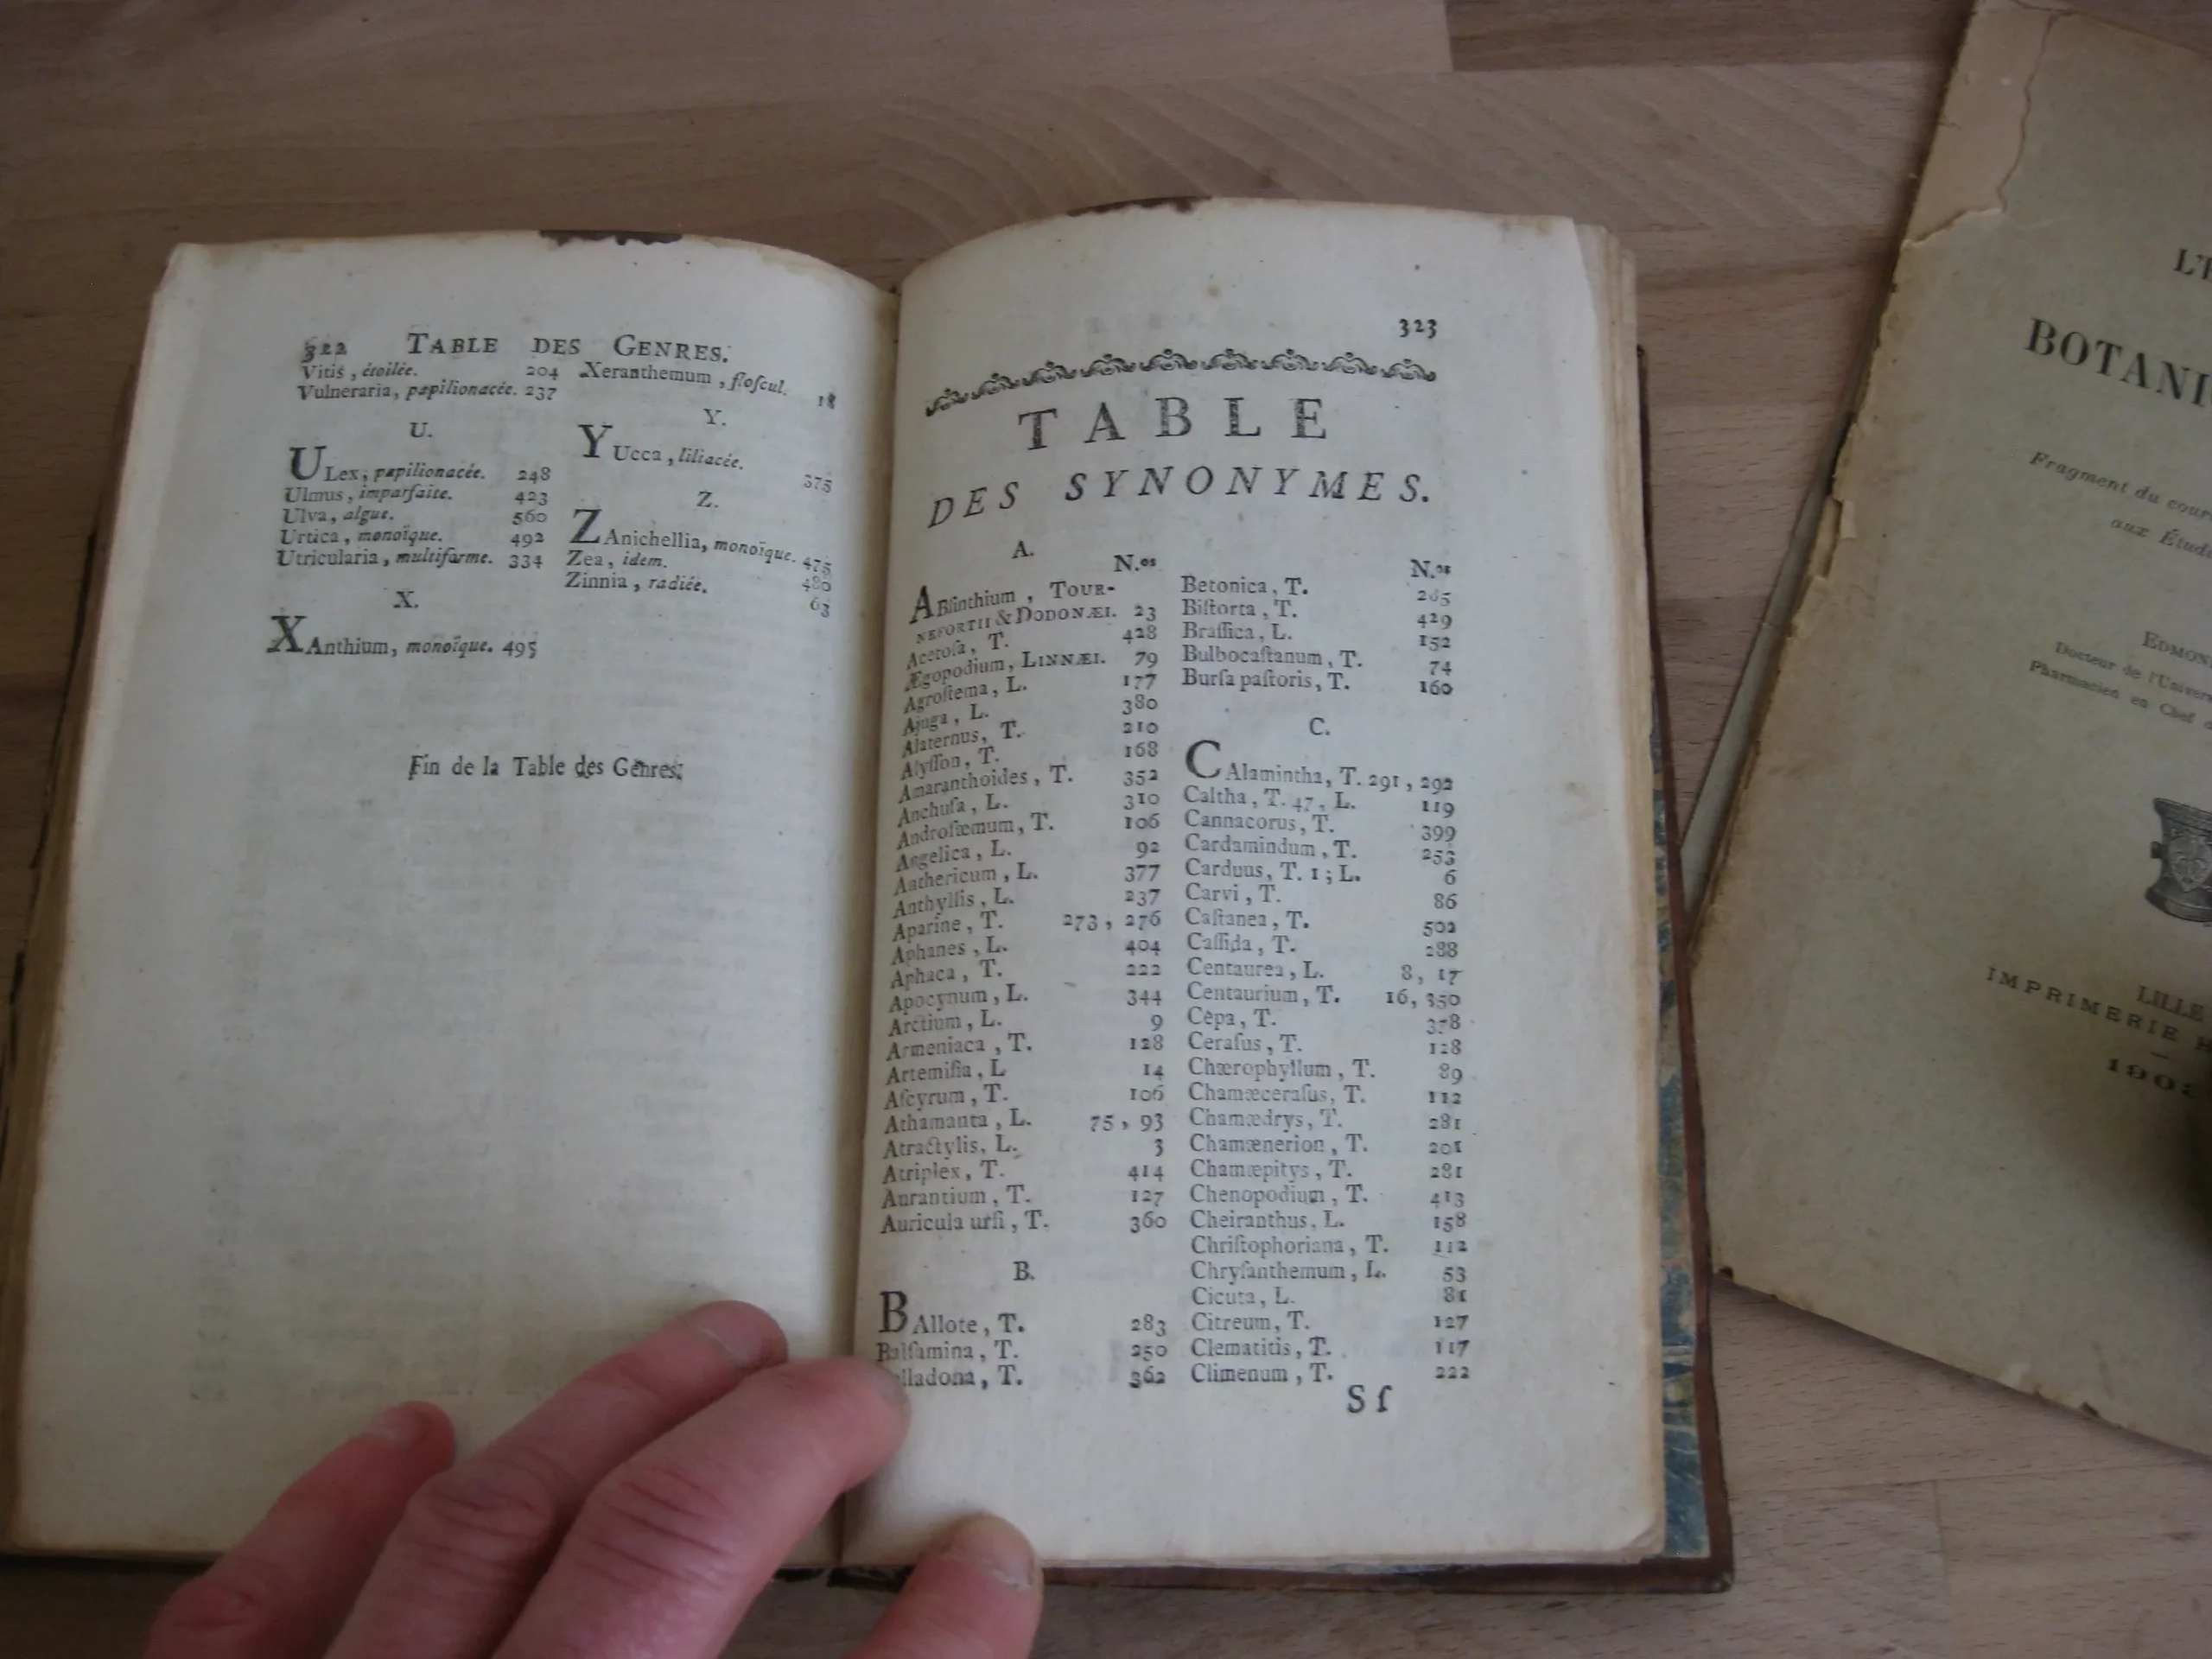 322 TABLE DES GENRES.
Vitis, étoilée. 204
Vulneraria, papilionacée. 237
U.
ULex, papilionacée. 248
Ulmus, imparfaite. 423
Ulva, algue. 560
Urtica, monoïque. 492
Utricularia, multiforme. 334
X.
XAnthium, monoïque. 495
Xeranthemum, floſcul. 18
Y.
YUcca, liliacée. 375
Z.
ZAnichellia, monoïque. 475
Zea, idem. 480
Zinnia, radiée. 63
Fin de la Table des Genres.
323
TABLE
DES SYNONYMES.
A.
N.os
ABſinthium, TOUR-
NEFORTII & DODONÆI. 23
Acetoſa, T. 428
Ægopodium, LINNÆI. 79
Agroſtema, L. 177
Ajuga, L. 380
Alaternus, T. 210
Alyſſon, T. 168
Amaranthoides, T. 352
Anchuſa, L. 310
Androſæmum, T. 106
Angelica, L. 92
Anthericum, L. 377
Anthyllis, L. 237
Aparine, T. 273, 276
Aphanes, L. 404
Aphaca, T. 222
Apocynum, L. 344
Arctium, L. 9
Armeniaca, T. 128
Artemiſia, L 14
Aſcyrum, T. 106
Athamanta, L. 75, 93
Atractylis, L. 3
Atriplex, T. 414
Aurantium, T. 127
Auricula urſi, T. 360
B.
BAllote, T. 283
Balſamina, T. 250
lladona, T. 362
N.os
Betonica, T. 285
Biſtorta, T. 429
Braſſica, L. 152
Bulbocaſtanum, T. 74
Burſa paſtoris, T. 160
C.
CAlamintha, T. 291, 292
Caltha, T. 47, L. 119
Cannacorus, T. 399
Cardamindum, T. 253
Carduus, T. 1; L. 6
Carvi, T. 86
Caſtanea, T. 502
Caſſida, T. 288
Centaurea, L. 8, 17
Centaurium, T. 16, 350
Cepa, T. 378
Ceraſus, T. 128
Chærophyllum, T. 89
Chamæceraſus, T. 112
Chamædrys, T. 281
Chamænerion, T. 201
Chamæpitys, T. 281
Chenopodium, T. 413
Cheiranthus, L. 158
Chriſtophoriana, T. 112
Chryſanthemum, L. 53
Cicuta, L. 81
Citreum, T. 127
Clematitis, T. 117
Climenum, T. 222
Sſ
BOTANI
Fragment du cour
aux Étudi
EDMON
Docteur de l'Univer
Pharmacien en Chef d
LILLE
IMPRIMERIE H